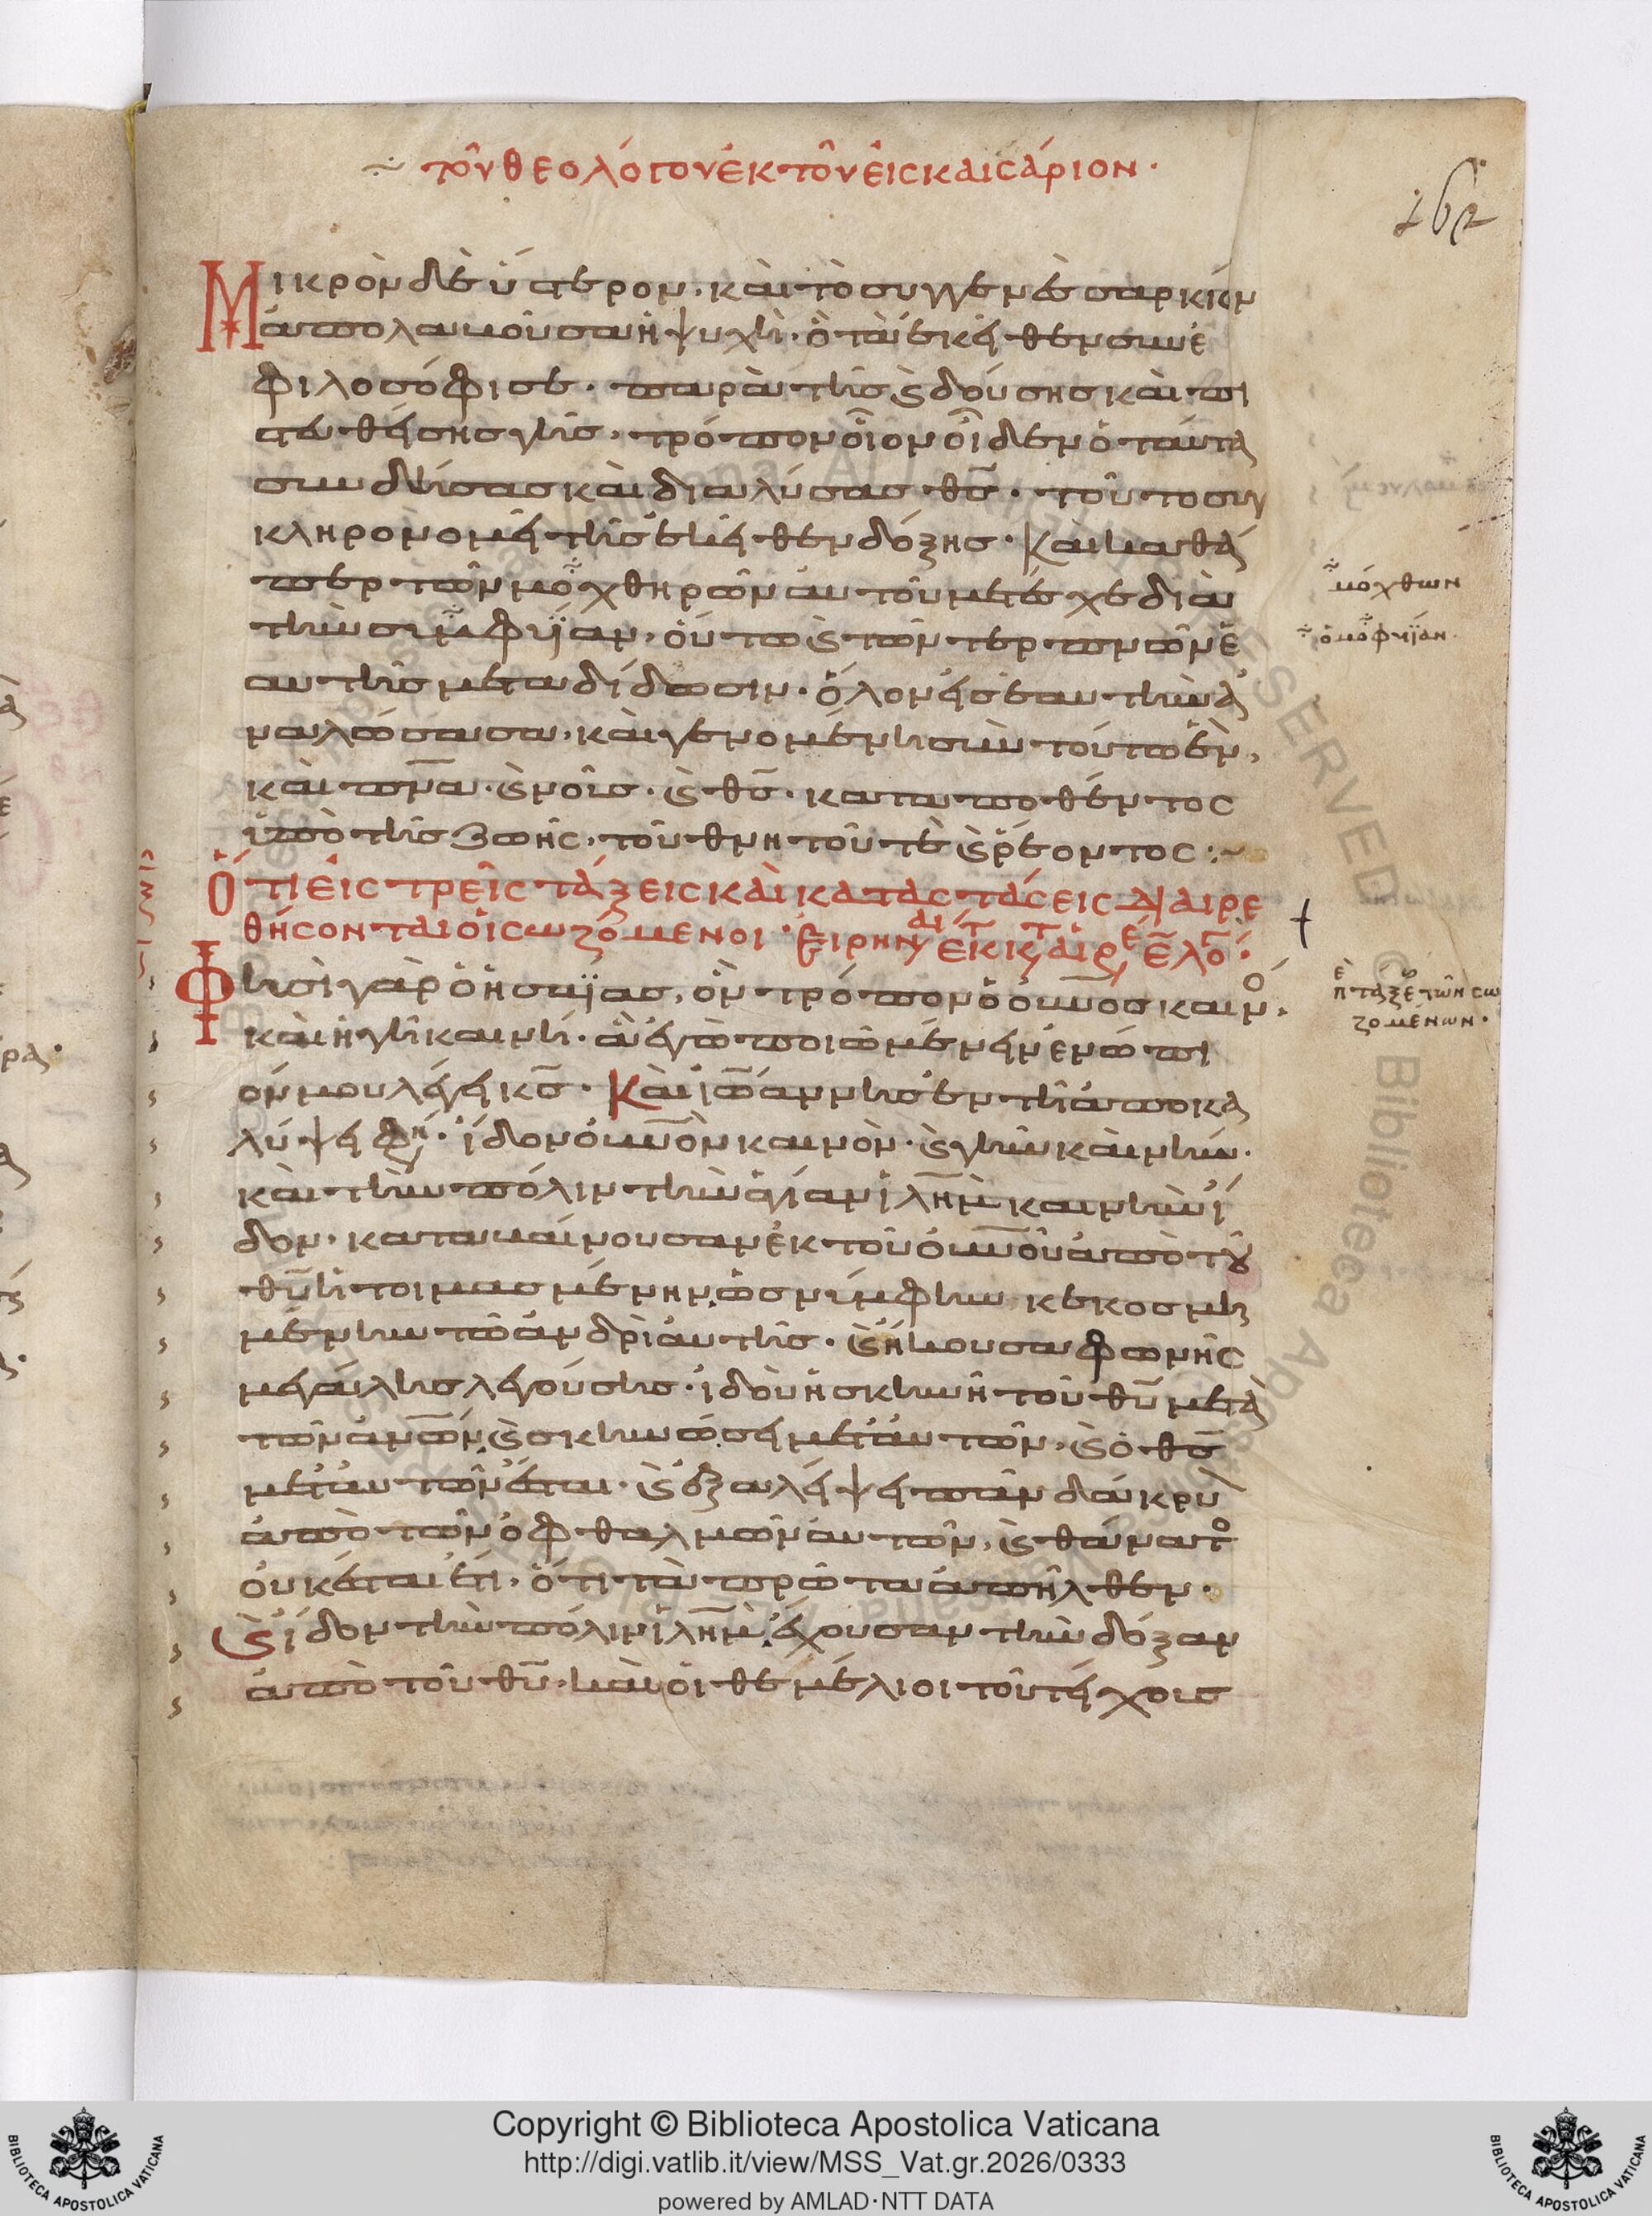 τοῦ θεολόγου ἐκ τοῦ εἰς καισάριον·
162
Μικρὸν δὲ ὕστερον, καὶ τὸ συγγενὲς σαρκίον
ἀπολαβοῦσα ἡ ψυχὴ· ᾧ τὰ ἐκεῖθεν συνε
φιλοσόφισε· παρὰ τῆς καὶ δούσης καὶ πι
στευθείσης γῆς, τρόπον οἷον οἶδεν ὁ ταῦτα
συνδήσας καὶ διαλύσας θς· τοῦτο συγ
κληρονομεῖ τῆς ἐκεῖθεν δόξης· Καὶ καθά
περ τῶν μοχθηρῶν αὐτοῦ μετέσχε διὰ
τὴν συμφυΐαν, οὕτω καὶ τῶν τερπνῶν ἑ
αυτῆς μεταδίδωσιν· ὅλον εἰς ἑαυτὴν ἀ
ναλώσασα, καὶ γενομένη σὺν τούτω ἓν,
καὶ πνα· καὶ νοῦς· καὶ θς· καταποθέντος
ὑπὸ τῆς ζωῆς, τοῦ θνητοῦ τε καὶ ῥέοντος:~
Ὅτι εἰς τρεῖς τάξεις καὶ καταστάσεις διαιρε
θήσονται οἱ σωζόμενοι· εἰρηναί ἐκ τ κτ αἱρέ ε λό·
Φησὶ γὰρ ὁ ἡσαΐας, ὃν τρόπον ὁ οὐνος καινό,
καὶ ἡ γῆ καινὴ· ἃ ἐγὼ ποιῶ μένει ἐνώπι
όν μου λέγει κς· Καὶ ἰωάννης ἐν τῆ ἀποκα
λύψει φη· ἴδον οὐνὸν καινὸν· καὶ γῆν καὶ νὴν·
καὶ τὴν πόλιν τὴν ἁγίαν ἱλημ καινὴν ἴ
δον· καταβαίνουσαν ἐκ τοῦ οὐνοῦ ἀπὸ τοῦ
θυ ἡτοιμασμένην, ὡς νύμφην κεκοσμη
μένην τῶ ἀνδρὶ αὐτῆς· καὶ ἤκουσα φωνῆς
μεγάλης λεγούσης· ἰδοὺ ἡ σκηνὴ τοῦ θυ μετὰ
τῶν ἀνων, καὶ σκηνώσει μετ' αὐτῶν, καὶ ὁ θς
μετ' αὐτῶν ἔσται· καὶ ἐξαλείψει πᾶν δάκρυ
ἀπὸ τῶν ὀφθαλμῶν αὐτῶν, καὶ θάνατο
οὐκ ἔσται ἔτι, ὅτι τὰ πρῶτα ἀπῆλθεν·
καὶ ἴδον τὴν πόλιν ἱλημ, ἔχουσαν τὴν δόξαν
ἀπὸ τοῦ θυ· καὶ οἱ θεμέλιοι τοῦ τείχους
μόχθων
ὁμοφυΐαν·
π ταξε τῶν σω
ζομένων·
Copyright © Biblioteca Apostolica Vaticana
http://digi.vatlib.it/view/MSS_Vat.gr.2026/0333
powered by AMLAD·NTT DATA
BIBLIOTECA APOSTOLICA VATICANA
BIBLIOTECA APOSTOLICA VATICANA